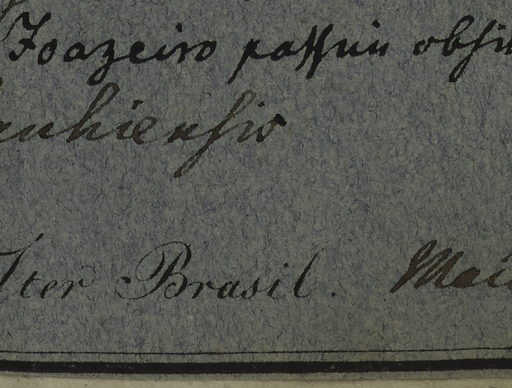 Joazeiro passim obsi
anhiensis
Iter Brasil. Mai